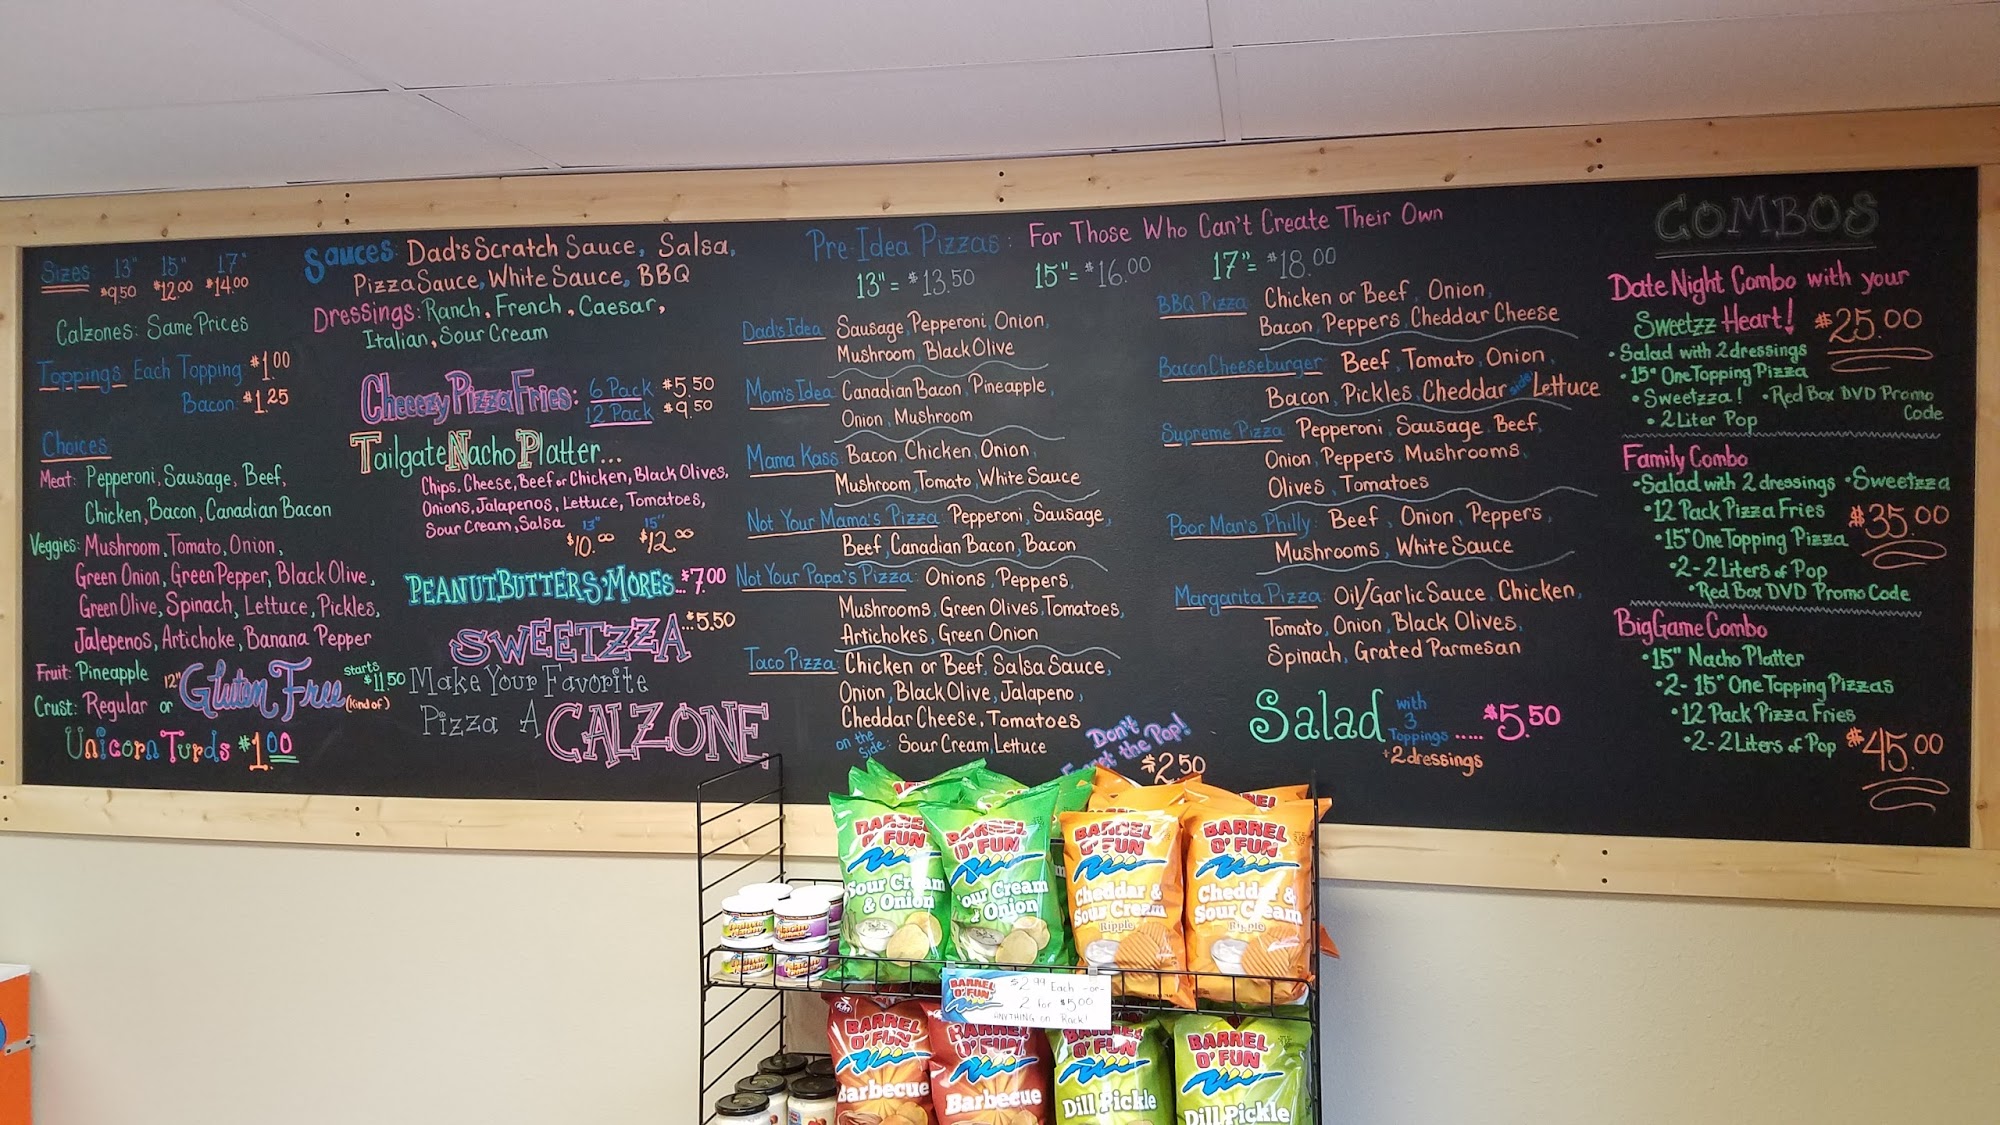 Sizes: 13" 15" 17"
$9.50 $12.00 $14.00
Calzones: Same Prices
Toppings Each Topping: $1.00
Bacon: $1.25
Choices
Meat: Pepperoni, Sausage, Beef,
Chicken, Bacon, Canadian Bacon
Veggies: Mushroom, Tomato, Onion,
Green Onion, Green Pepper, Black Olive,
Green Olive, Spinach, Lettuce, Pickles,
Jalepenos, Artichoke, Banana Pepper
Fruit: Pineapple
Crust: Regular or 12" Gluten Free (kind of) starts $11.50
Unicorn Turds $1.00
Sauces: Dad's Scratch Sauce, Salsa,
Pizza Sauce, White Sauce, BBQ
Dressings: Ranch, French, Caesar,
Italian, Sour Cream
Cheeezy Pizza Fries: 6 Pack $5.50
12 Pack $9.50
Tailgate Nacho Platter...
Chips, Cheese, Beef or Chicken, Black Olives,
Onions, Jalapenos, Lettuce, Tomatoes,
Sour Cream, Salsa 13" $10.00 15" $12.00
Peanut Butter S'Mores... $7.00
Sweetzza ...$5.50
Make Your Favorite
Pizza A Calzone
Pre-Idea Pizzas: For Those Who Can't Create Their Own
13" = $13.50 15" = $16.00 17" = $18.00
Dad's Idea: Sausage, Pepperoni, Onion,
Mushroom, Black Olive
Mom's Idea: Canadian Bacon, Pineapple,
Onion, Mushroom
Mama Kass: Bacon, Chicken, Onion,
Mushroom, Tomato, White Sauce
Not Your Mama's Pizza: Pepperoni, Sausage,
Beef, Canadian Bacon, Bacon
Not Your Papa's Pizza: Onions, Peppers,
Mushrooms, Green Olives, Tomatoes,
Artichokes, Green Onion
Taco Pizza: Chicken or Beef, Salsa Sauce,
Onion, Black Olive, Jalapeno,
Cheddar Cheese, Tomatoes
on the side: Sour Cream, Lettuce
Don't
the Pop!
$2.50
BBQ Pizza: Chicken or Beef, Onion,
Bacon, Peppers, Cheddar Cheese
Bacon Cheeseburger: Beef, Tomato, Onion,
Bacon, Pickles, Cheddar side: Lettuce
Supreme Pizza: Pepperoni, Sausage, Beef,
Onion, Peppers, Mushrooms,
Olives, Tomatoes
Poor Man's Philly: Beef, Onion, Peppers,
Mushrooms, White Sauce
Margarita Pizza: Oil/Garlic Sauce, Chicken,
Tomato, Onion, Black Olives,
Spinach, Grated Parmesan
Salad with 3 Toppings ..... $5.50
+2 dressings
COMBOS
Date Night Combo with your
Sweetzz Heart! $25.00
• Salad with 2 dressings
• 15" One Topping Pizza
• Sweetzza! • Red Box DVD Promo Code
• 2 Liter Pop
Family Combo
• Salad with 2 dressings • Sweetzza
• 12 Pack Pizza Fries $35.00
• 15" One Topping Pizza
• 2 - 2 Liters of Pop
• Red Box DVD Promo Code
Big Game Combo
• 15" Nacho Platter
• 2 - 15" One Topping Pizzas
• 12 Pack Pizza Fries
• 2 - 2 Liters of Pop $45.00
BARREL O' FUN
Sour Cream & Onion
BARREL O' FUN
Sour Cream & Onion
BARREL O' FUN
Cheddar & Sour Cream
Ripple
BARREL O' FUN
Cheddar & Sour Cream
Ripple
BARREL O' FUN
$2.99 Each -or-
2 for $5.00
ANYTHING on Rack!
BARREL O' FUN
Barbecue
BARREL O' FUN
Barbecue
BARREL O' FUN
Dill Pickle
BARREL O' FUN
Dill Pickle